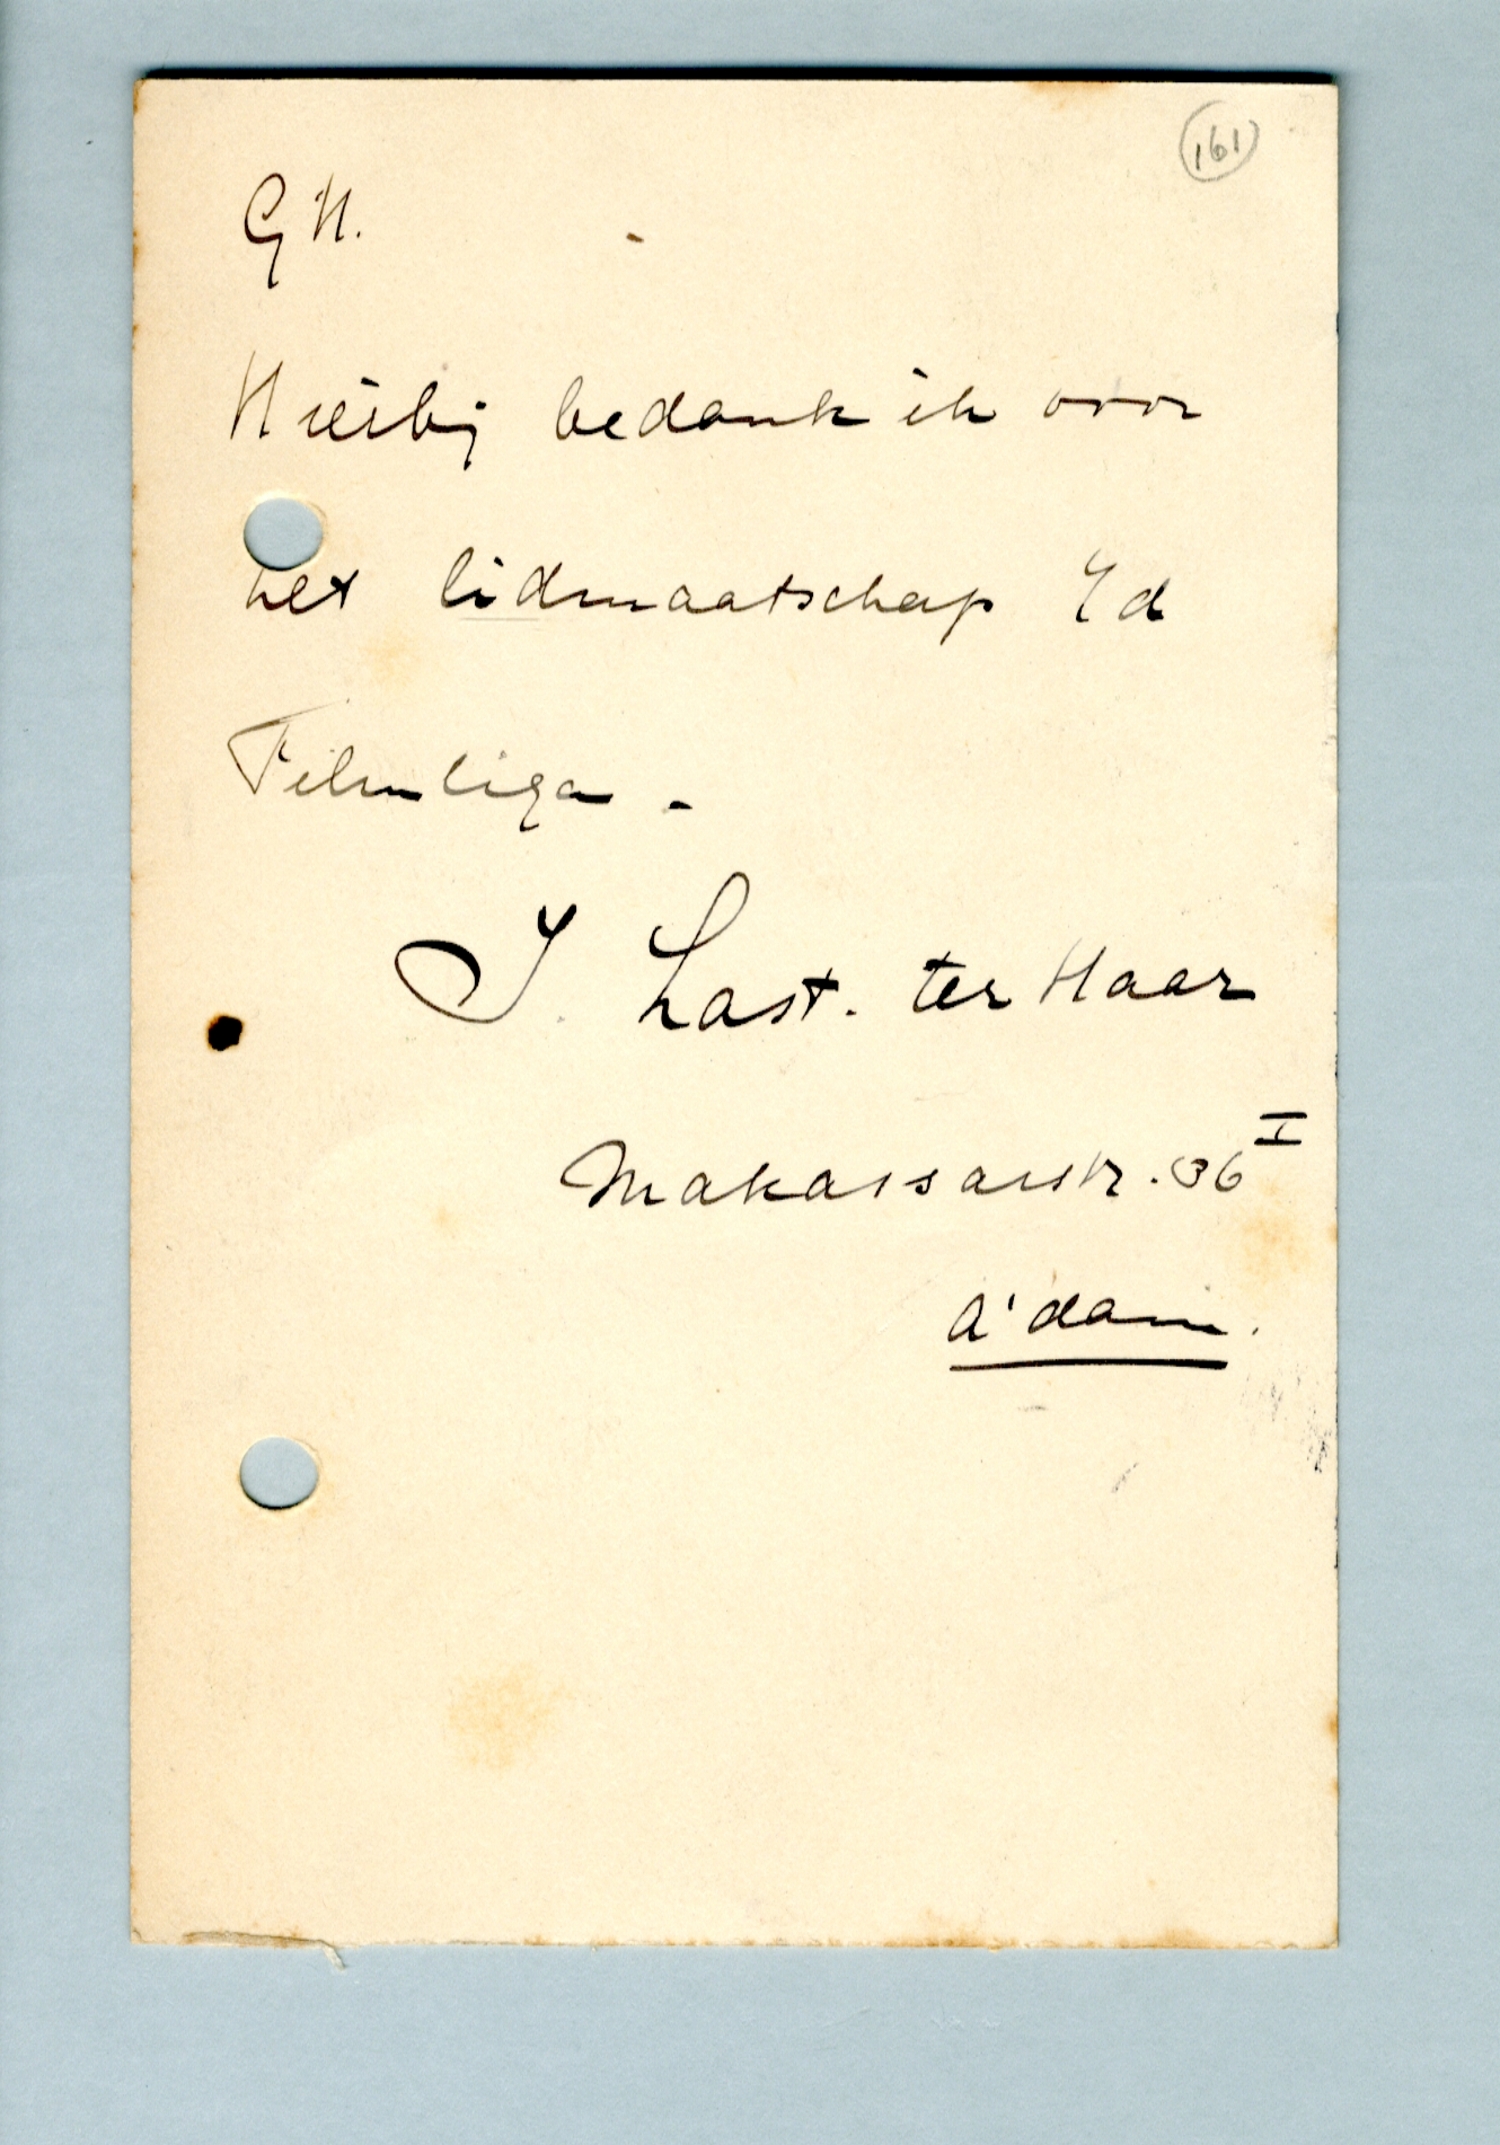 161
G H.
Hierbij bedank ik voor
het lidmaatschap v/d
Filmliga.
I. Last. ter Haar
Makassarstr. 36 I
A'dam.